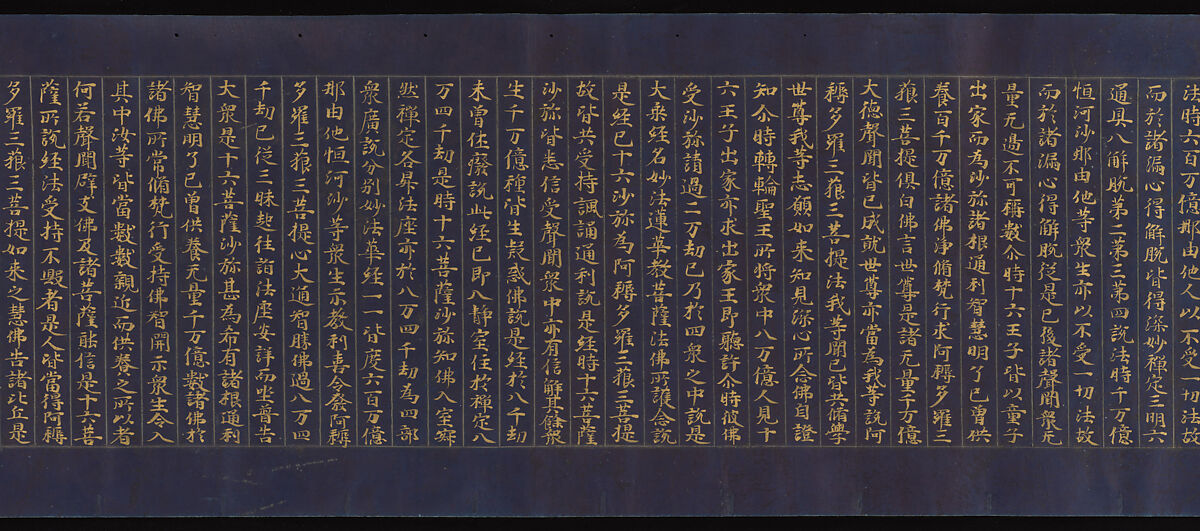 法時六百万億那由他人以不受一切法故
而於諸漏心得解脫皆得深妙禪定三明六
通具八解脫第二第三第四說法時千万億
恒河沙那由他等衆生亦以不受一切法故
而於諸漏心得解脫從是已後諸聲聞衆无
量无邊不可稱數尒時十六王子皆以童子
出家而為沙弥諸根通利智慧明了已曾供
養百千万億諸佛淨脩梵行求阿耨多羅三
藐三菩提俱白佛言世尊是諸无量千万億
大德聲聞皆已成就世尊亦當為我等說阿
耨多羅三藐三菩提法我等聞已皆共脩學
世尊我等志願如来知見深心所念佛自證
知尒時轉輪聖王所將衆中八万億人見十
六王子出家亦求出家王即聽許尒時彼佛
受沙弥請過二万劫已乃於四衆之中說是
大乘經名妙法蓮華教菩薩法佛所護念說
是經已十六沙弥為阿耨多羅三藐三菩提
故皆共受持諷誦通利說是經時十六菩薩
沙弥皆悉信受聲聞衆中亦有信解其餘衆
生千万億種皆生疑惑佛說是經於八千劫
未曾休廢說此經已即入靜室住於禪定八
万四千劫是時十六菩薩沙弥知佛入室寂
然禪定各昇法座亦於八万四千劫為四部
衆廣說分別妙法華經一一皆度六百万億
那由他恒河沙等衆生示教利喜令發阿耨
多羅三藐三菩提心大通智勝佛過八万四
千劫已從三昧起往詣法座安詳而坐普告
大衆是十六菩薩沙弥甚為希有諸根通利
智慧明了已曾供養无量千万億數諸佛於
諸佛所常脩梵行受持佛智開示衆生令入
其中汝等皆當數數親近而供養之所以者
何若聲聞辟支佛及諸菩薩能信是十六菩
薩所說經法受持不毀者是人皆當得阿耨
多羅三藐三菩提如来之慧佛告諸比丘是